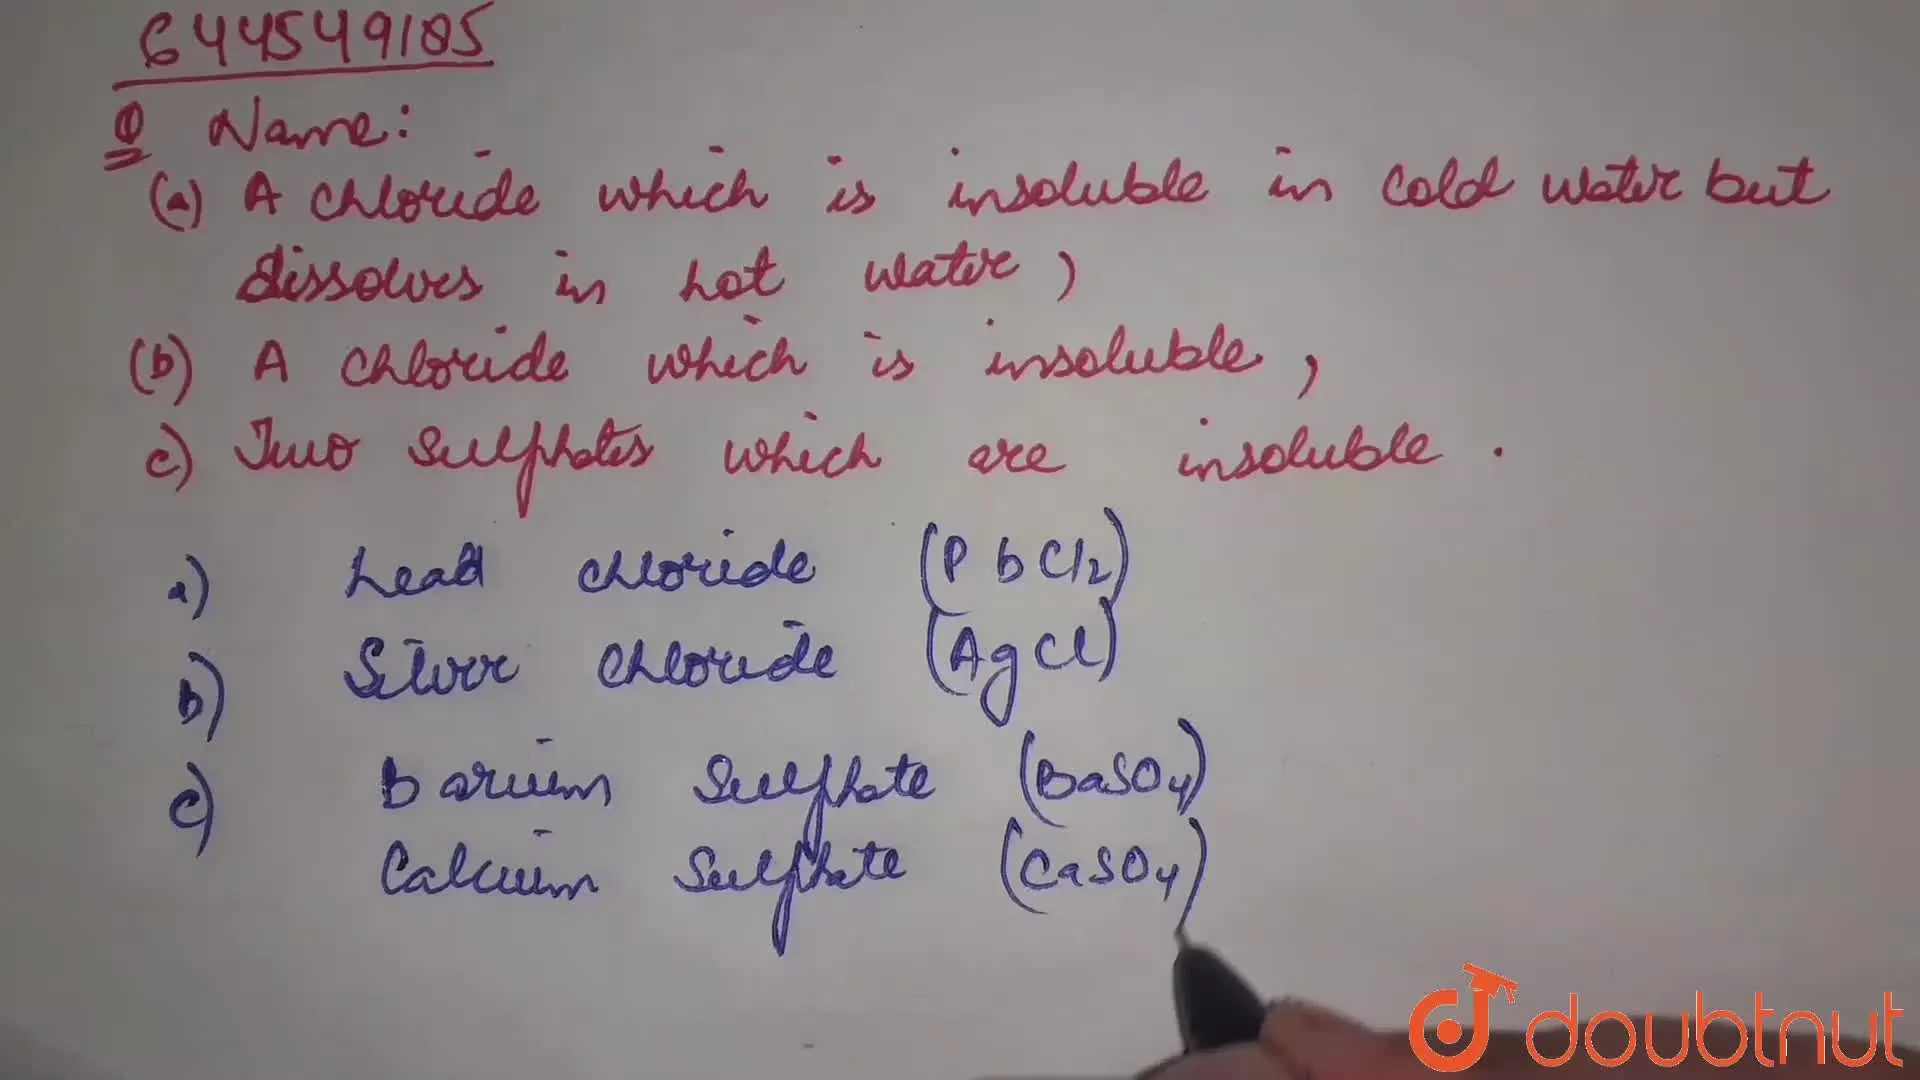 644549185
Q Name:
(a) A chloride which is insoluble in cold water but
dissolves in hot water,
(b) A chloride which is insoluble,
c) Two sulphates which are insoluble.
a) Lead chloride (PbCl2)
b) Silver chloride (AgCl)
c) Barium Sulphate (BaSO4)
Calcium Sulphate (CaSO4)
doubtnut